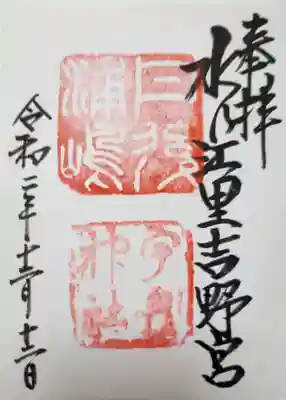 奉拝
水ノ江里吉野宮
丹後
浦嶋
宇良
神社
令和二年十一月十一日